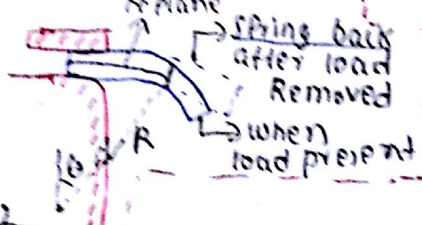 plane
Spring back
after load
Removed
R
when
load present
θ